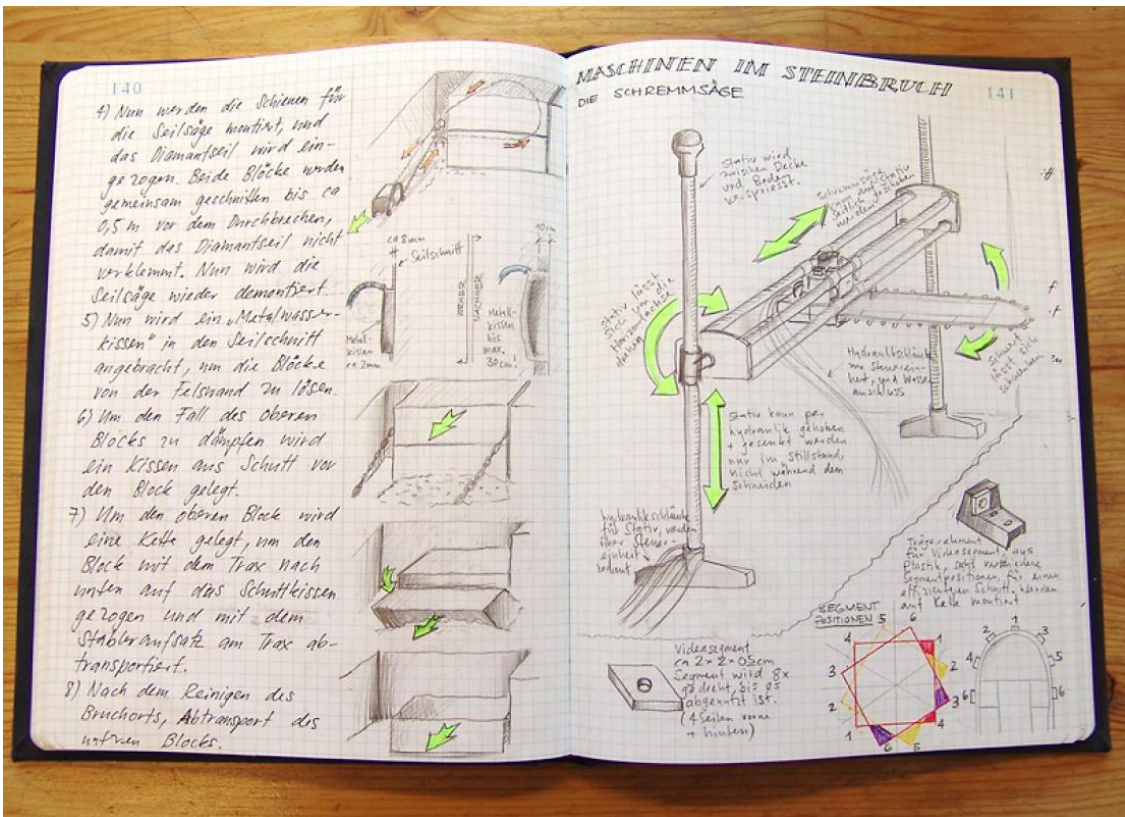 140
4) Nun werden die Schienen für
die Seilsäge montiert, und
das Diamantseil wird ein-
gezogen. Beide Blöcke werden
gemeinsam geschnitten bis ca
0,5 m vor dem Durchbrechen,
damit das Diamantseil nicht
verklemmt. Nun wird die
Seilsäge wieder demontiert.
5) Nun wird ein "Metalwasser-
kissen" in den Seilschnitt
angebracht, um die Blöcke
von der Felswand zu lösen.
6) Um den Fall des oberen
Blocks zu dämpfen wird
ein Kissen aus Schutt vor
den Block gelegt.
7) Um den oberen Block wird
eine Kette gelegt, um den
Block mit dem Trax nach
unten auf das Schuttkissen
gezogen und mit dem
Stableraufsatz am Trax ab-
transportiert.
8) Nach dem Reinigen des
Bruchorts, Abtransport des
untren Blocks.
ca 8mm
Seilschnitt
VORHER
NACHHER
10cm
Metal-
kissen
ca 2mm
Metall-
kissen
bis
max.
30cm!
MASCHINEN IM STEINBRUCH
141
DIE SCHREMMSÄGE
Stativ wird
zwischen Decke
und Boden
verspriesst.
Schremmsäge
kann auf Stativ
seitlich geschoben
werden
Stativ lässt
sich um die
Horizontachse
drehen
Schwert
lässt sich
schwenken
Hydraulikschläuche
zur Steuerein-
heit, und Wasser
anschluss
Stativ kann per
hydraulik gehoben
+ gesenkt werden
nur im Stillstand,
nicht während dem
schneiden
hydraulikschläuche
für Stativ, werden
über Steuer-
einheit
bedient
Trägerelement
für Videasegment, aus
Plastik, sechs verschiedene
Segmentpositionen, für einen
effizienteren Schnitt, werden
auf Kette montiert
Videasegment
ca 2 x 2 x 0.5cm
Segment wird 8x
gedreht, bis es
abgenutzt ist.
(4 Seiten vorne
+ hinten)
SEGMENT
POSITIONEN
5 6
4 1
3 2
2 3
1 4
6 5
1
2 3
4 5
6 6